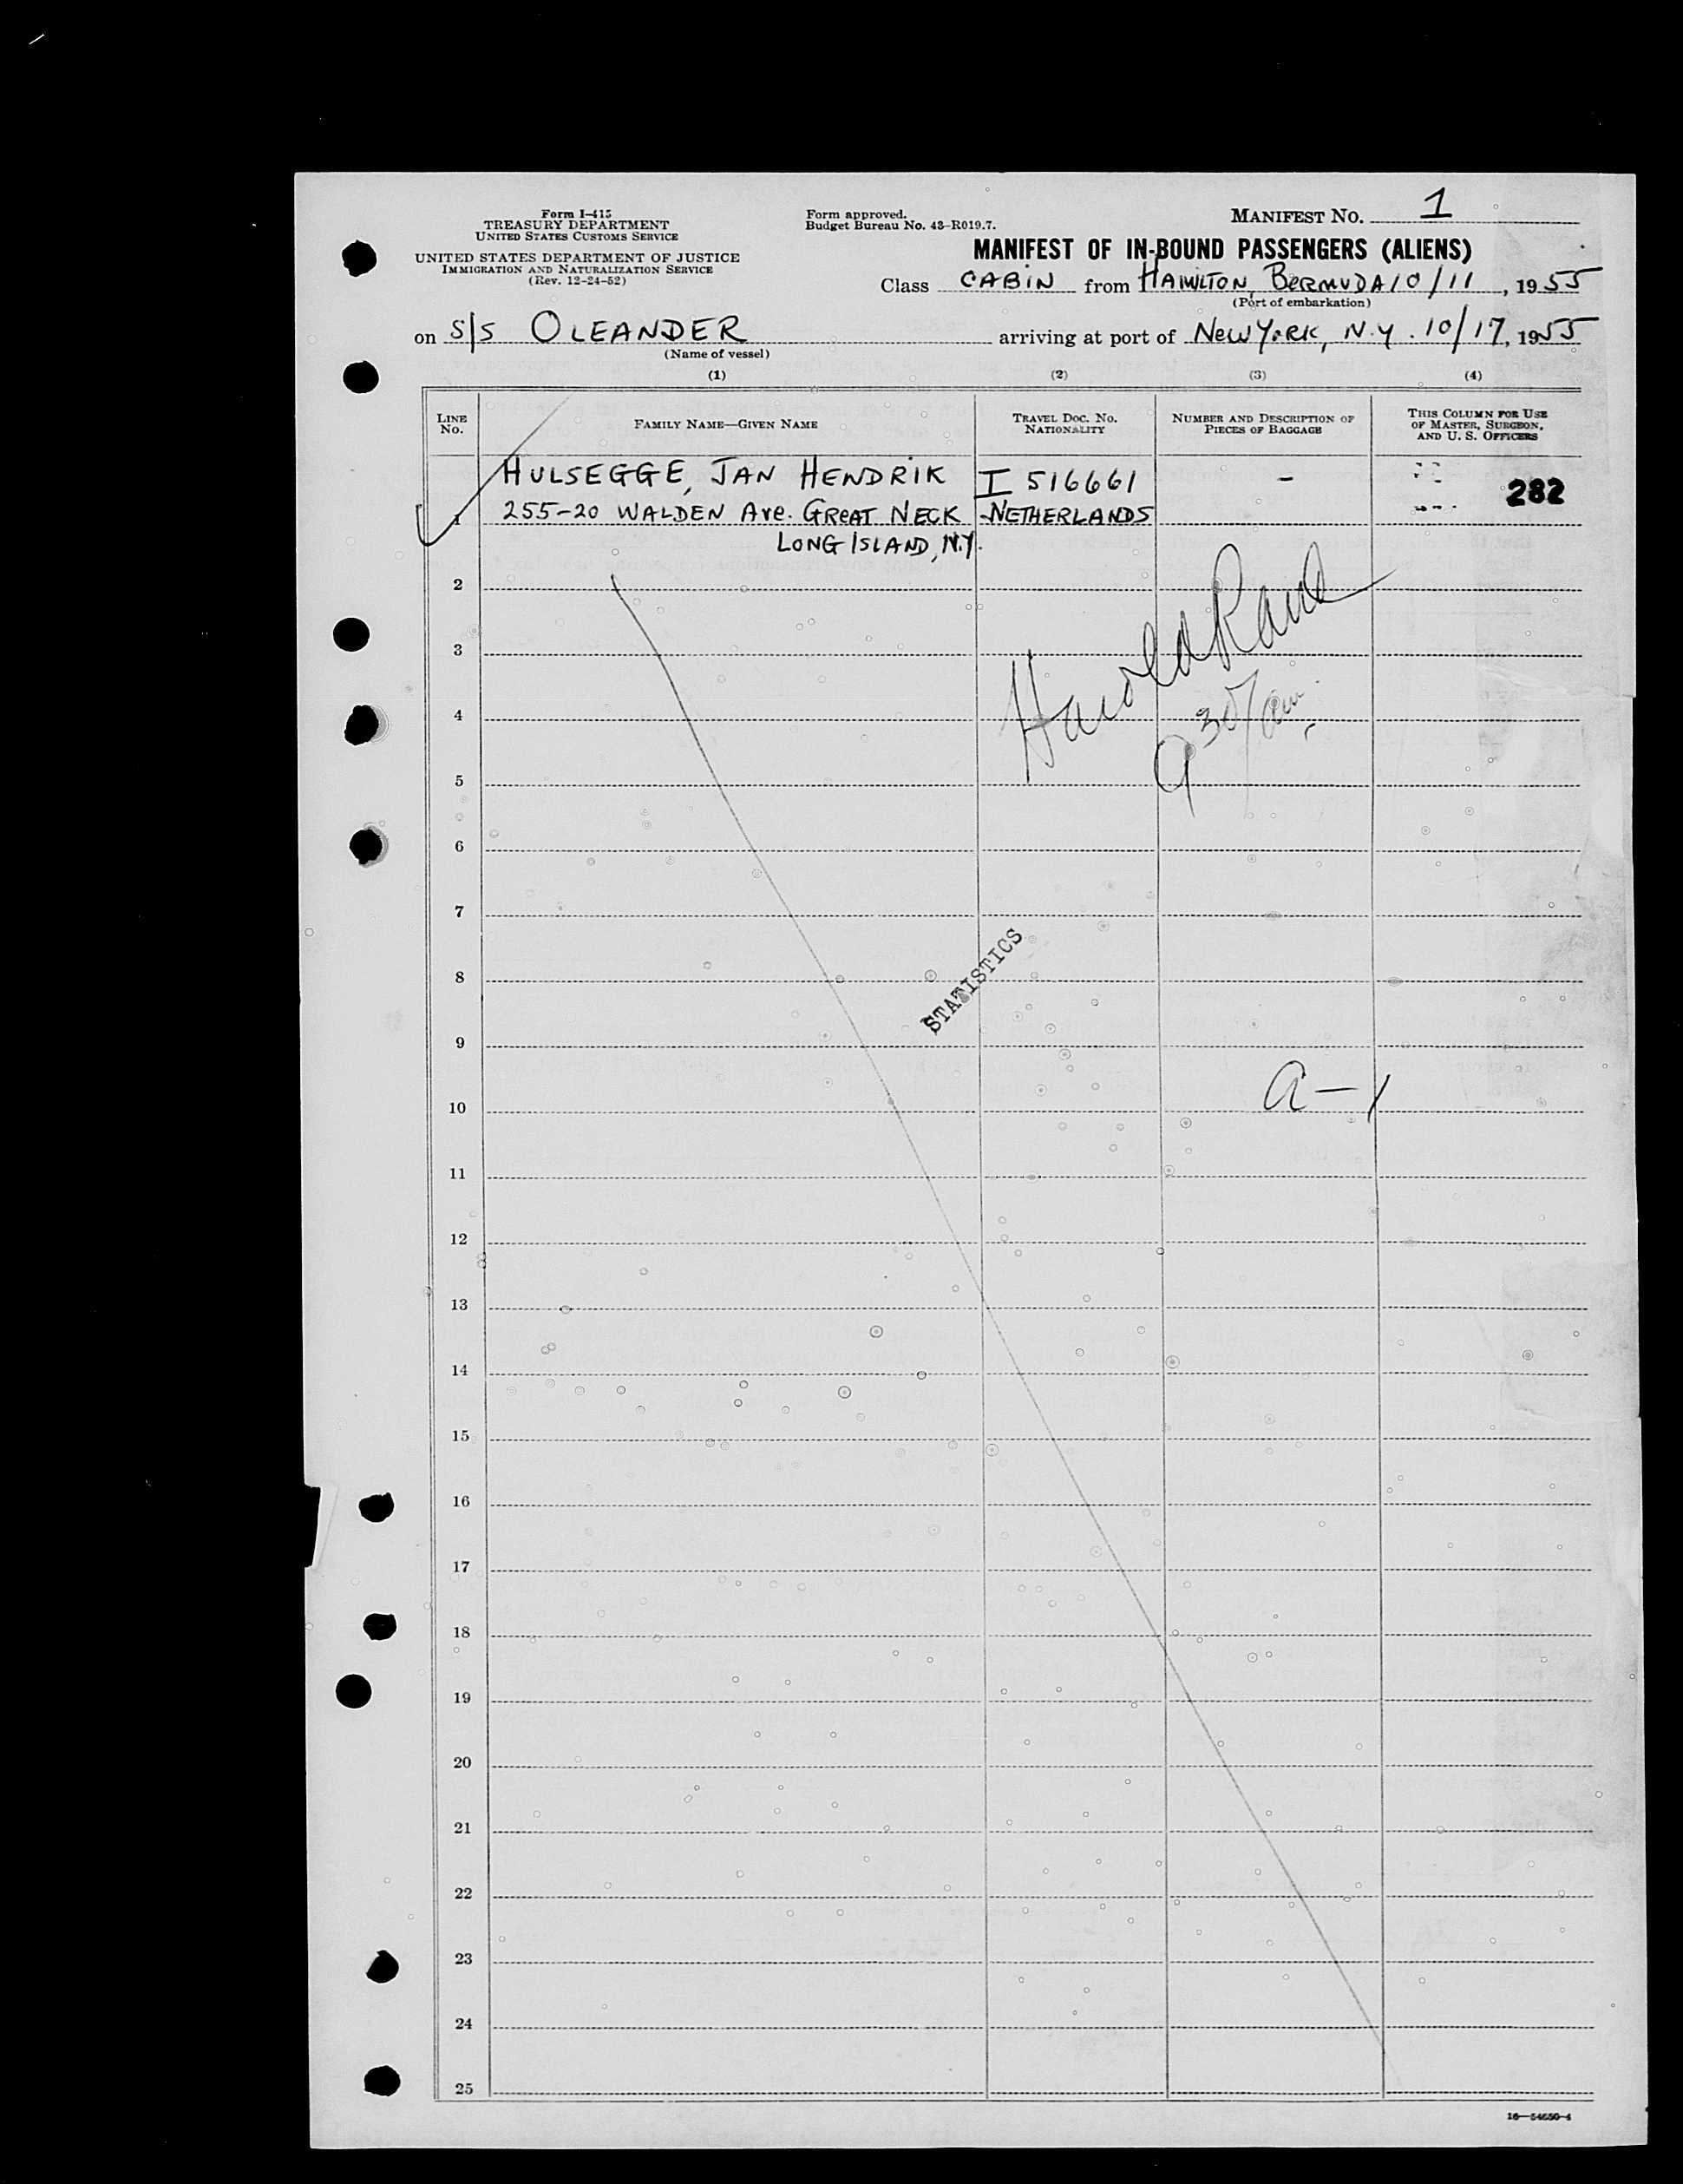 Form I-415
TREASURY DEPARTMENT
UNITED STATES CUSTOMS SERVICE
UNITED STATES DEPARTMENT OF JUSTICE
IMMIGRATION AND NATURALIZATION SERVICE
(Rev. 12-24-52)
Form approved.
Budget Bureau No. 43-R019.7.
MANIFEST No. 1
MANIFEST OF IN-BOUND PASSENGERS (ALIENS)
Class CABIN from HAMILTON, BERMUDA 10/11, 1955
(Port of embarkation)
on S/S OLEANDER arriving at port of NEW YORK, N.Y. 10/17, 1955
(Name of vessel)
(1) (2) (3) (4)
LINE No. FAMILY NAME—GIVEN NAME TRAVEL DOC. No. NATIONALITY NUMBER AND DESCRIPTION OF PIECES OF BAGGAGE THIS COLUMN FOR USE OF MASTER, SURGEON, AND U. S. OFFICERS
HULSEGGE, JAN HENDRIK I 516661 - 282
1 255-20 WALDEN Ave. GREAT NECK NETHERLANDS
LONG ISLAND, N.Y.
2
3
Harold
4
9 30/am
5
6
7
8
STATISTICS
9
a-1
10
11
12
13
14
15
16
17
18
19
20
21
22
23
24
25
16—54650-4